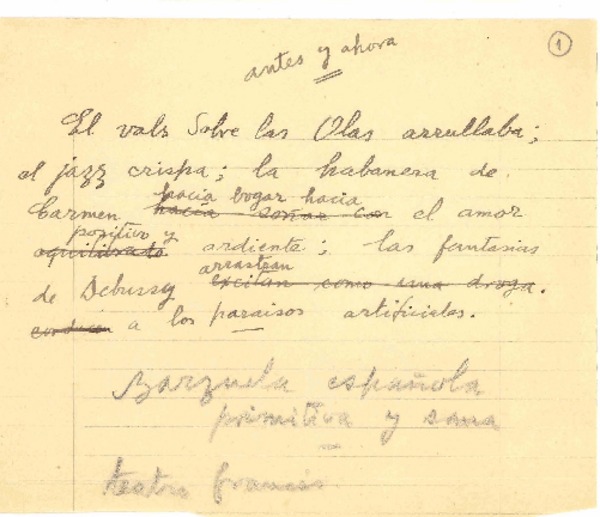 1
antes y ahora
El vals Sobre las Olas arrullaba;
el jazz crispa; la habanera de
hacia bogar hacia
Carmen hacia soñar con el amor
positivo y
equilibrado ardiente; las fantasias
arrastran
de Debussy excitan como una droga.
conducen a los paraisos artificiales.
Zarzuela española
primitiva y sana
teatro francés